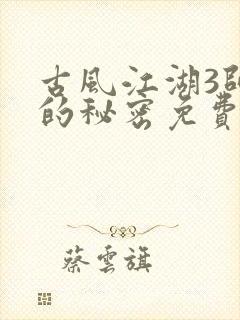 古風江湖3
的秘密免費
蔡雲旗